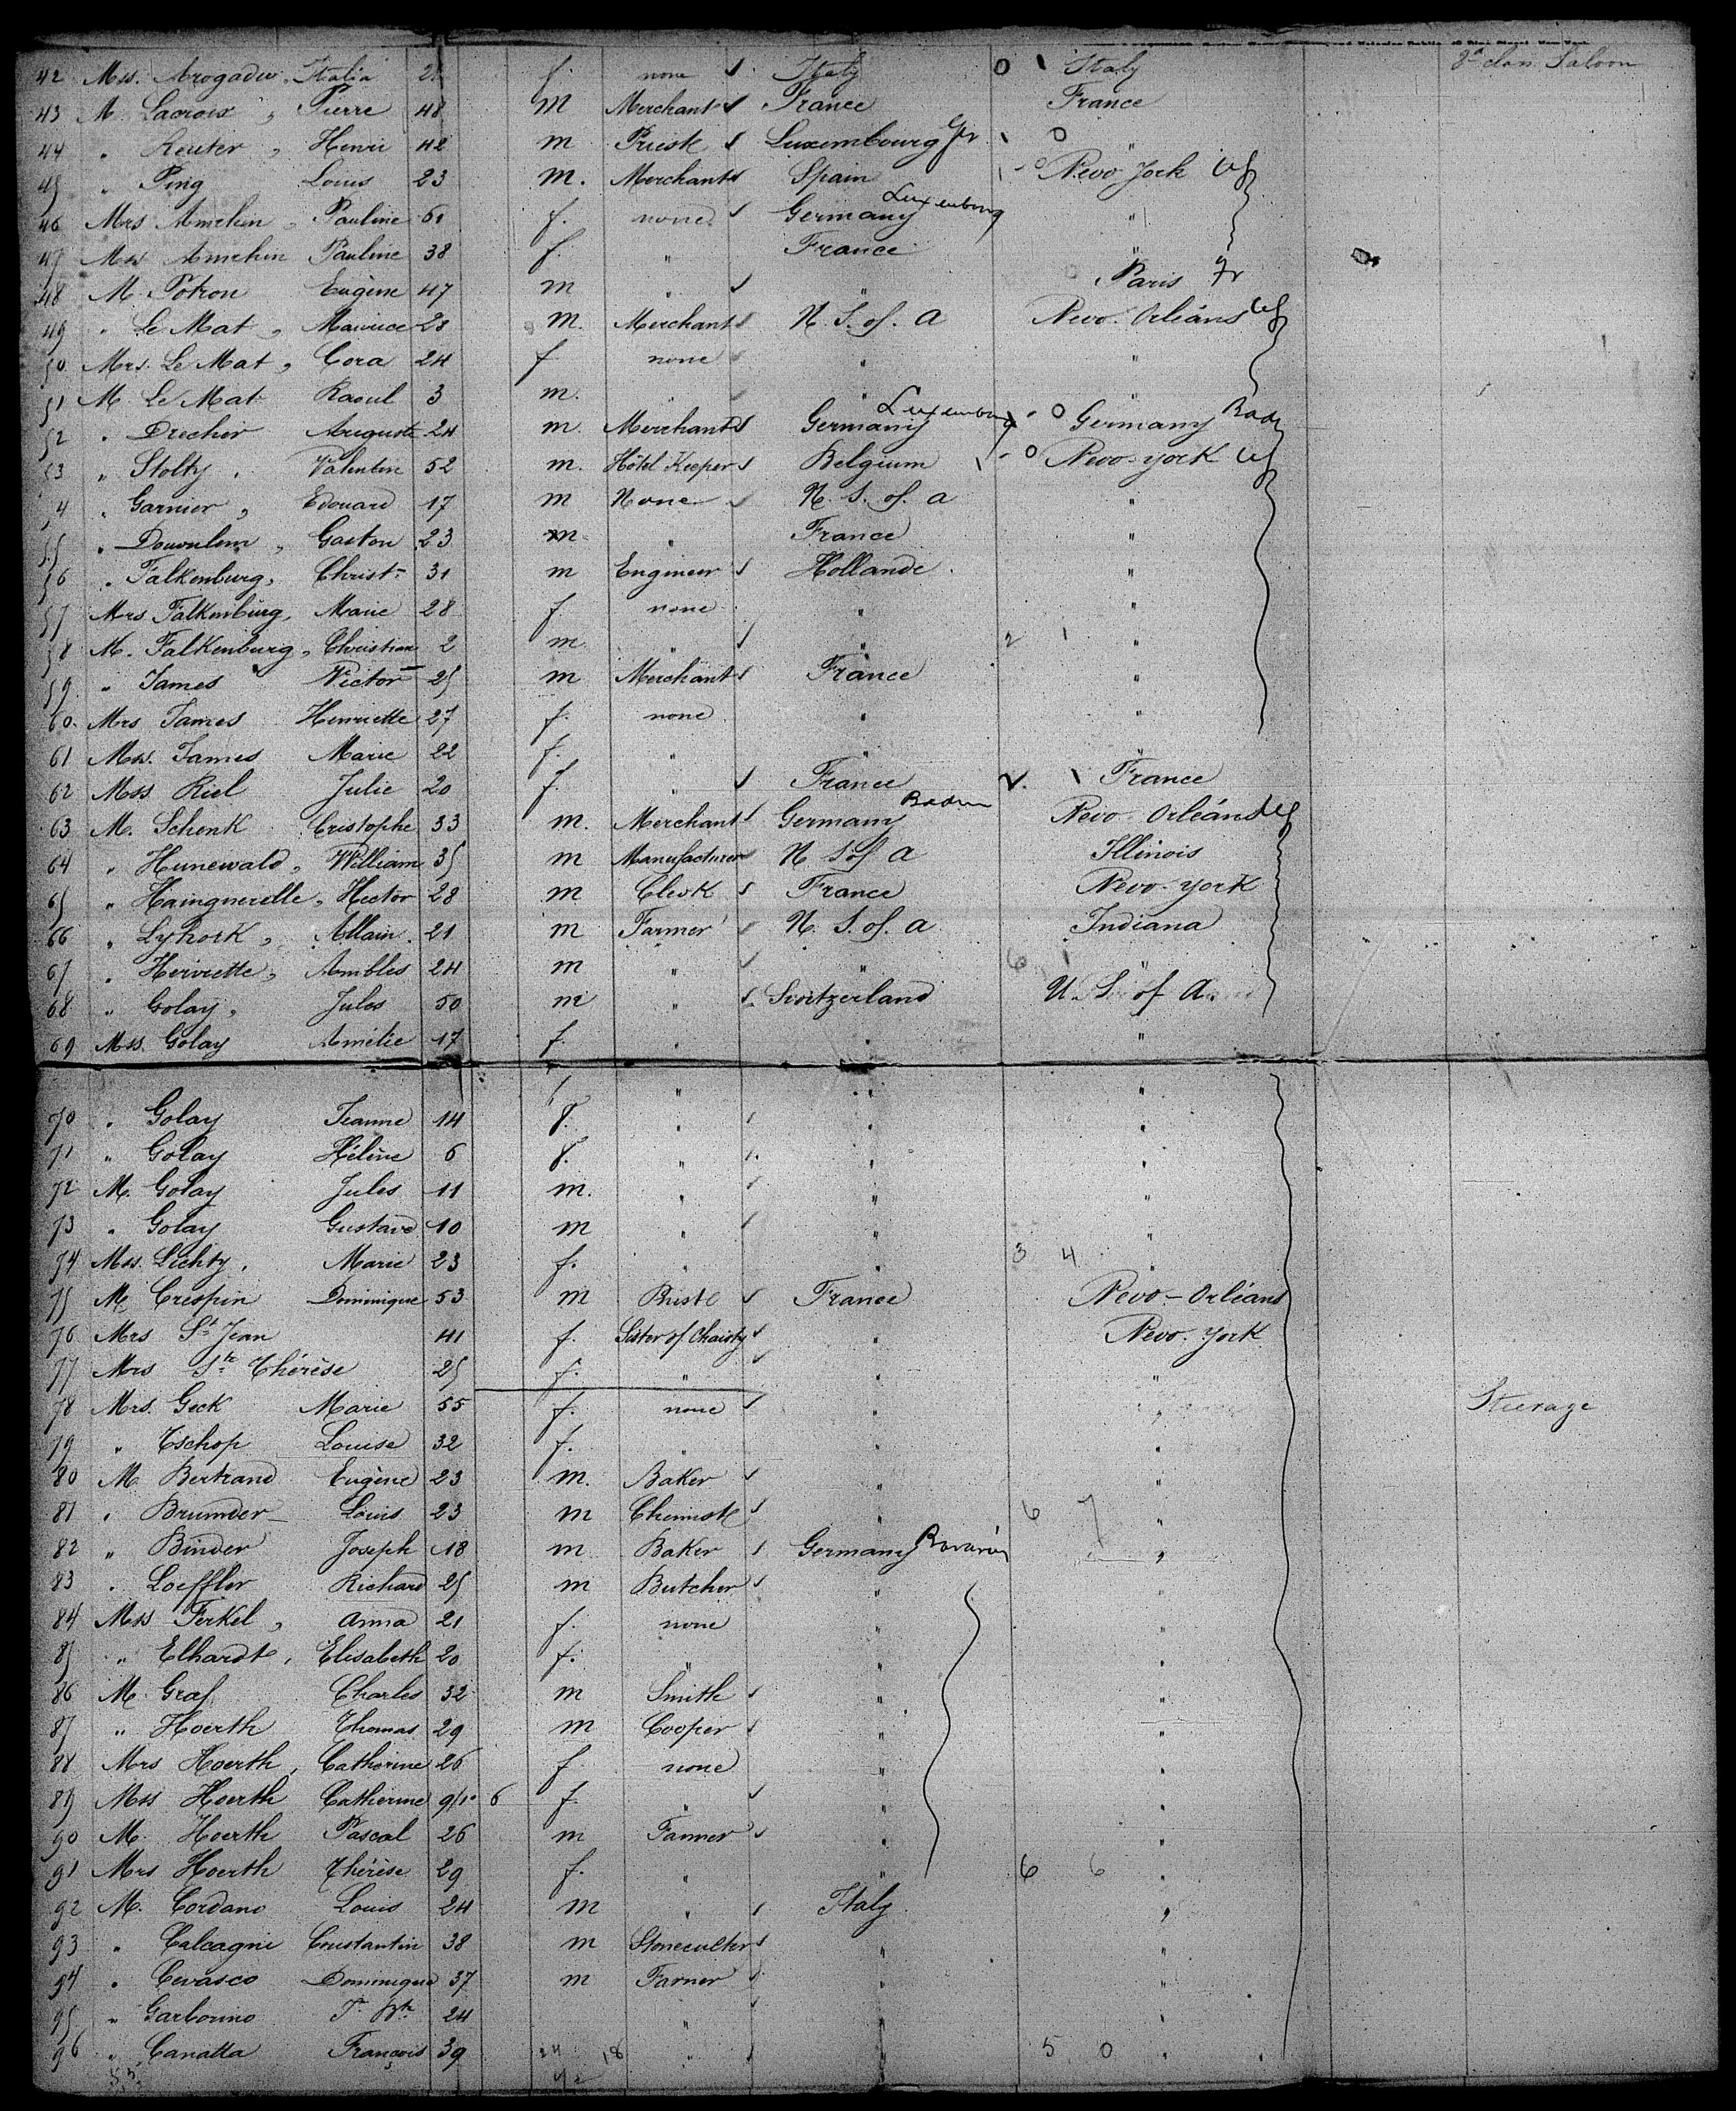 42 Mss. Arogadus Italia f. none Italy 0 1 Italy 2d class Saloon
43 M Lacroix, Pierre 48 m Merchant France France
44 " Reuter, Henri 42 m Priest Luxembourg Gr 1 0 "
45 " Ping Louis 23 m. Merchant Spain 1 - 0 New York
46 Mrs Amehin, Pauline 61 f. none Germany Luxemburg "
47 Mss Amehin Pauline 38 f. " France "
48 M. Potron Eugène 47 m " " Paris Fr
49 " Le Mat, Maurice 28 m. Merchant U. S. of. a New. Orléans
50 Mrs. Le Mat, Cora 24 f none " "
51 M Le Mat Raoul 3 m. " " "
52 " Drecher Auguste 24 m. Merchant Germany Luxemburg - 0 Germany Bad
53 " Stolty, Valentin 52 m. Hôtel Keeper Belgium 1 - 0 New-york
54 " Garnier, Edouard 17 m None U. S. of. a "
55 " Gaston 23 m " France "
56 " Falkenburg, Christn 31 m Engineer Hollande. "
57 Mrs. Falkenburg, Marie 28 f. none " "
58 M. Falkenburg, Christian 2 m " " 2 1 "
59 " James Victor 25 m Merchant France "
60. Mrs James Henriette 27 f. none " "
61 Mss. James Marie 22 f. " " "
62 Mss Riel Julie 20 f. " France 2. 1 France
63 M. Schenk Cristophe 33 m. Merchant Germany Baden New Orléans
64 " Hunewald, William 35 m Manufacturer U S of a Illinois
65 " Haingnerelle, Hector 28 m Clerk France New-york
66 " Lyhork, Allain. 21 m Farmer U. S. of. a Indiana
67 " Heivrette, Ambles 24 m " " 6 1 "
68 " Golay, Jules 50 m " Switzerland U. S. of A.
69 Mss. Golay Amélie 17 f. " " "
70 " Golay Jeanne 14 f. " " "
71 " Golay Hélène 6 f. " " "
72 M. Golay Jules 11 m. " " "
73 " Golay Gustave 10 m " " "
74 Mss. Lichty, Marie 23 f. " " 3 4 "
75 M Crespin Dominique 53 m Priest France New-Orléans
76 Mrs St Jean 41 f. Sister of Charity " New. York
77 Mrs Ste Thérèse 25 f. " " "
78 Mrs. Geck Marie 55 f. none " " Steerage
79 " Tschop Louise 32 f. " " "
80 M Bertrand Eugène 23 m. Baker " "
81 " Brumder Louis 23 m Chemist " 6 7 "
82 " Binder Joseph 18 m Baker Germany Bavaria "
83 " Loeffler Richard 25 m Butcher " "
84 Mss Ferkel, Anna 21 f. none " "
85 " Elhardt, Elisabeth 20 f. " " "
86 M. Graf Charles 32 m Smith " "
87 " Hoerth Thomas 29 m Cooper " "
88 Mrs Hoerth, Catherine 26 f none " "
89 Mss Hoerth Catherine 6 f. " " "
90 M. Hoerth Pascal 26 m Farmer " "
91 Mrs Hoerth Thérèse 29 f. " " 6 6 "
92 M. Cordano Louis 24 m " Italy "
93 " Calcagni Constantin 38 m Stonecutter " "
94 " Cevasco Dominique 37 m Farmer " "
95 " Garbouno 24 " " "
96 " Canatta François 39 24 18 " " 5 0 "